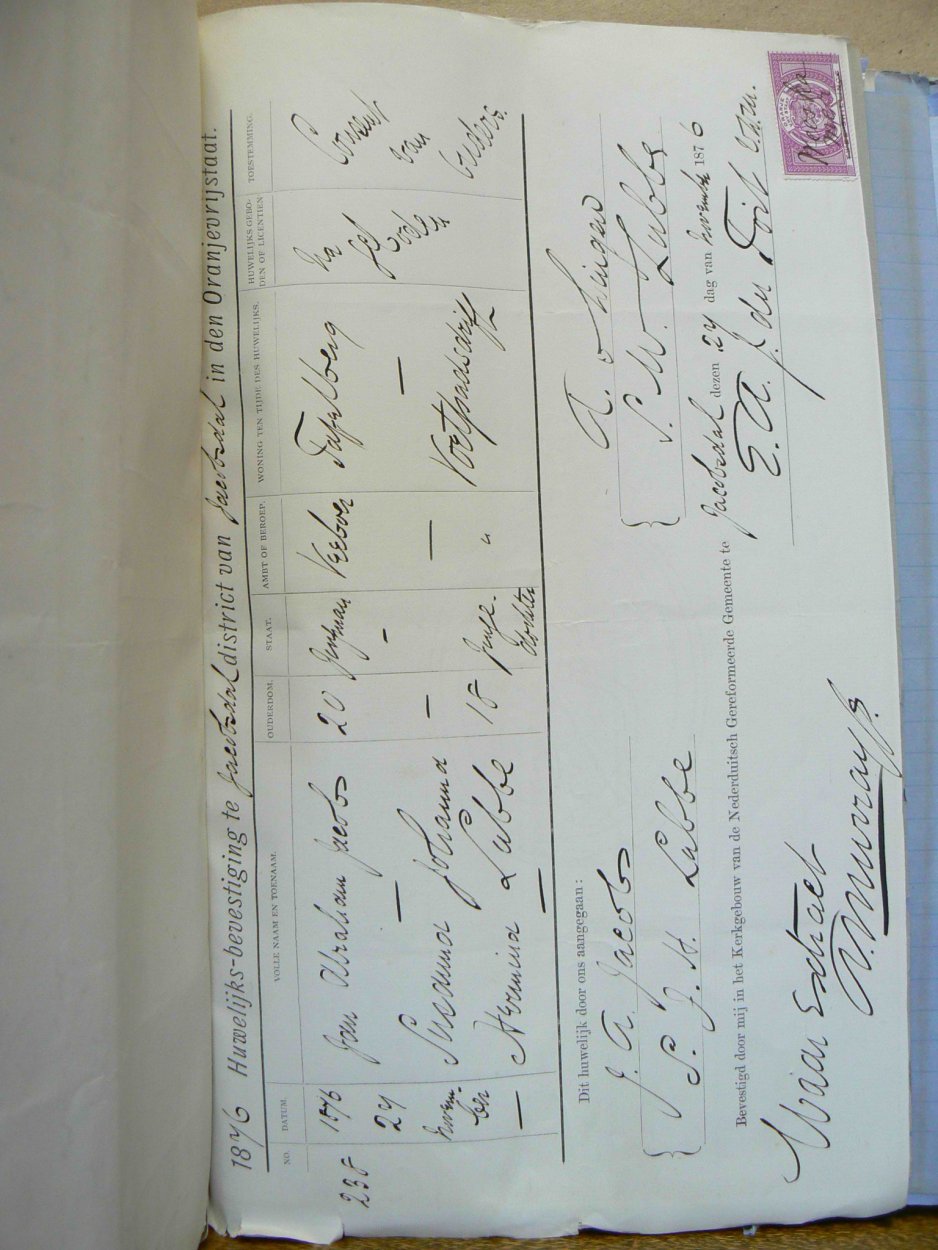 1876 Huwelijks-bevestiging te Jacobsdal district van Jacobsdal in den Oranjevrijstaat.
NO. DATUM. VOLLE NAAM EN TOENAAM. OUDERDOM. STAAT. AMBT OF BEROEP. WONING TEN TIJDE DES HUWELIJKS. HUWELIJKS GEBODEN OF LICENTIEN TOESTEMMING.
238 1876 Jan Abraham Jacobs 20 Jongman Veeboer Tafelberg Na Consent
24 — - — — Geboden van
novem- Susanna Johanna — Ouders.
ber Hermina Lubbe 18 Jonge- "
— — dochter
Dit huwelijk door ons aangegaan:
J. A. Jacobs
S. J. H. Lubbe
S. W. Lubbe
Bevestigd door mij in het Kerkgebouw van de Nederduitsch Gereformeerde Gemeente te Jacobsdal dezen 24 dag van november 1876
du Toit
Waar Extract
Murray